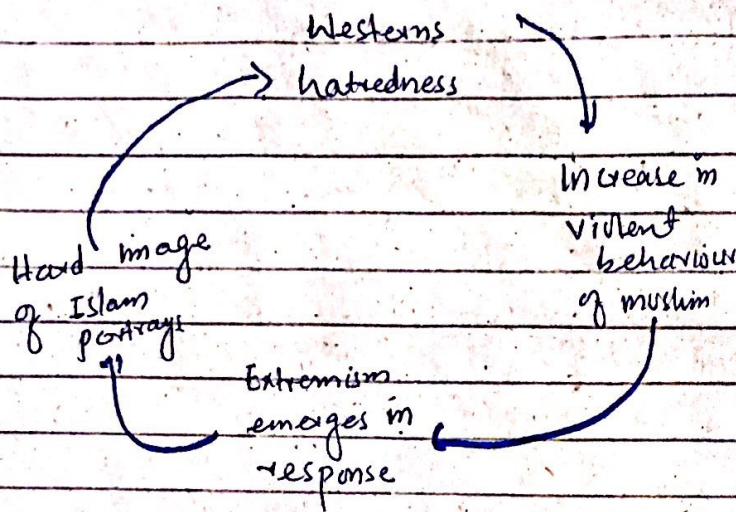 Westerns
hatredness
Increase in
violent
behaviour
of muslim
Extremism
emerges in
response
Hard image
of Islam
portrays